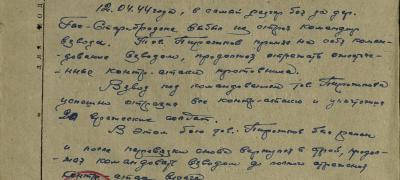 12.04.44 года, в самый разгар боя за дер.
был из строя командир
взвода. Тов. Пирожков принял на себя коман-
дование взводом, продолжал отражать ожесточен-
ные контр-атаки противника.
Взвод под командованием тов. Пирожкова
успешно отразил все контр-атаки и уничтожил
20 вражеских солдат.
В этом бою тов. Пирожков был ранен
и после перевязки снова вернулся в строй, продол-
жал командовать взводом до полного отражения
контр-атак врага